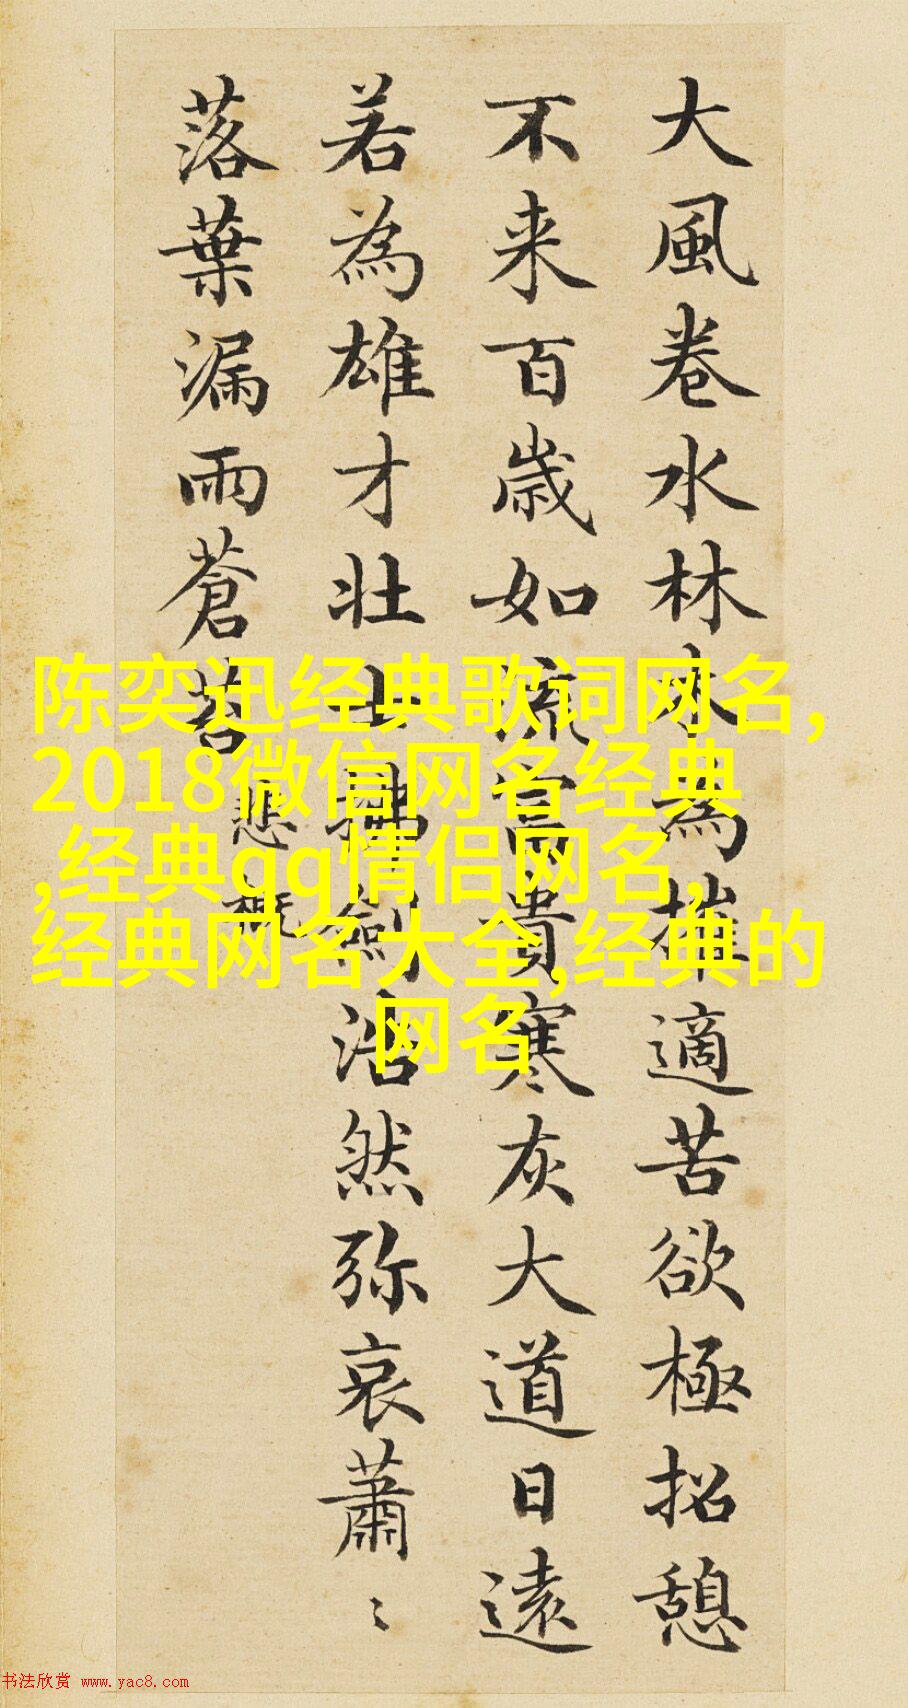 大風卷水林木為摧適苦欲極招憩
不来百歳如流富貴寒灰大道日遠
若為雄才壮士拂劍浩然弥哀蕭〻
落葉漏雨蒼苔
悲慨
陈奕迅经典歌词网名,
2018微信网名经典
,经典qq情侣网名,
经典网名大全,经典的
网名
书法欣赏 www.yac8.com